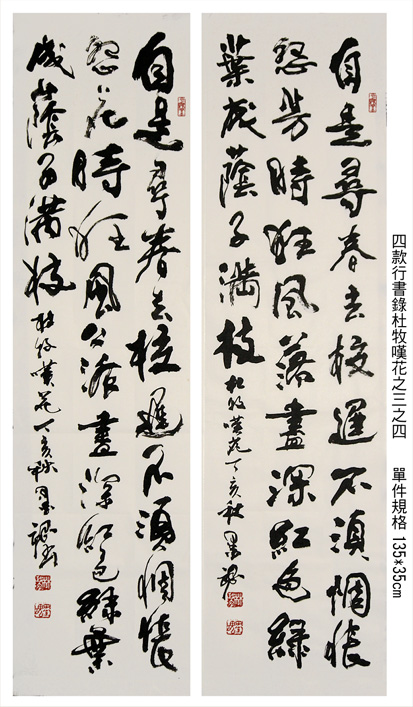 四款行書錄杜牧嘆花之三之四 單件規格 135*35cm
自是尋春去校遲不須惆悵
怨芳時狂風落盡深紅色綠
葉成蔭子滿枝 杜牧嘆花丁亥秋墨
自是尋春去校遲不須惆悵
怨芳時狂風落盡深紅色綠葉
成蔭子滿枝 杜牧嘆花丁亥秋墨